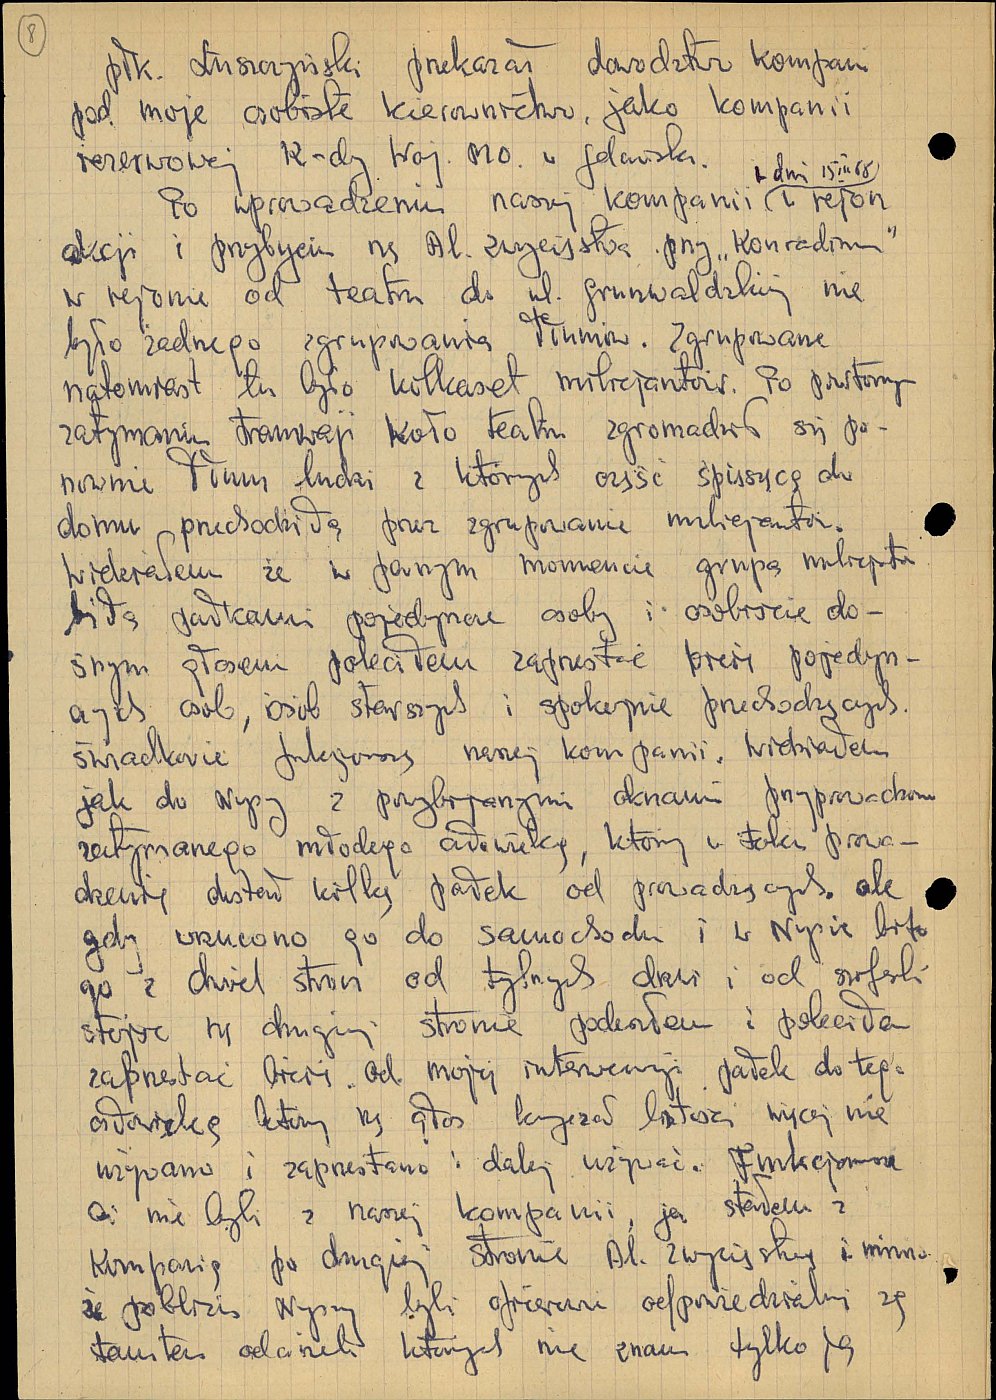 8
płk. Łuszczyński przekazał dowództwo kompani
pod moje osobiste kierownictwo, jako kompanii
rezerwowej K-dy Woj. MO. w Gdańsku.
w dni 15 III 68
Po wprowadzeniu naszej kompanii w rejon
akcji i przybyciu na Al. Zwycięstwa przy "Konradinum"
w rejonie od teatru do ul. Grunwaldzkiej nie
było żadnego zgrupowania tłumów. Zgrupowane
natomiast tu było kilkaset milicjantów. Po powtórnym
zatrzymaniu tramwaji koło teatru zgromadził się po-
nownie tłum ludzi z których część śpiesząca do
domu przechodziła przez zgrupowanie milicjantów.
Widziałem że w pewnym momencie grupa milicjantów
biła pałkami pojedyncze osoby i osobiście do-
śnym głosem poleciłem zaprzestać bicia pojedyn-
czych osób, osób starszych i spokojnie przechodzących.
Świadkowie funkcjonariusze naszej kompanii. Widziałem
jak do Nysy z oknami przyprowadzono
zatrzymanego młodego człowieka, który w toku prowa-
dzenia dostał kilka pałek od prowadzących. ale
gdy wrzucono go do samochodu i w Nysie bito
go z dwóch stron od tylnych drzwi i od szoferki
stojąc na drugiej stronie podszedłem i poleciłem
zaprzestać bicia. Od mojej interwencji pałek do tego
człowieka który na głos krzyczał litości więcej nie
używano i zaprzestano dalej używać. Funkcjonariusze
Ci nie byli z naszej kompanii, ja stałem z
Kompanią po drugiej stronie Al. Zwycięstwa i mimo
że pobliżu Nysy byli oficerowie odpowiedzialni za
tamten odcinek których nie znam tylko ja